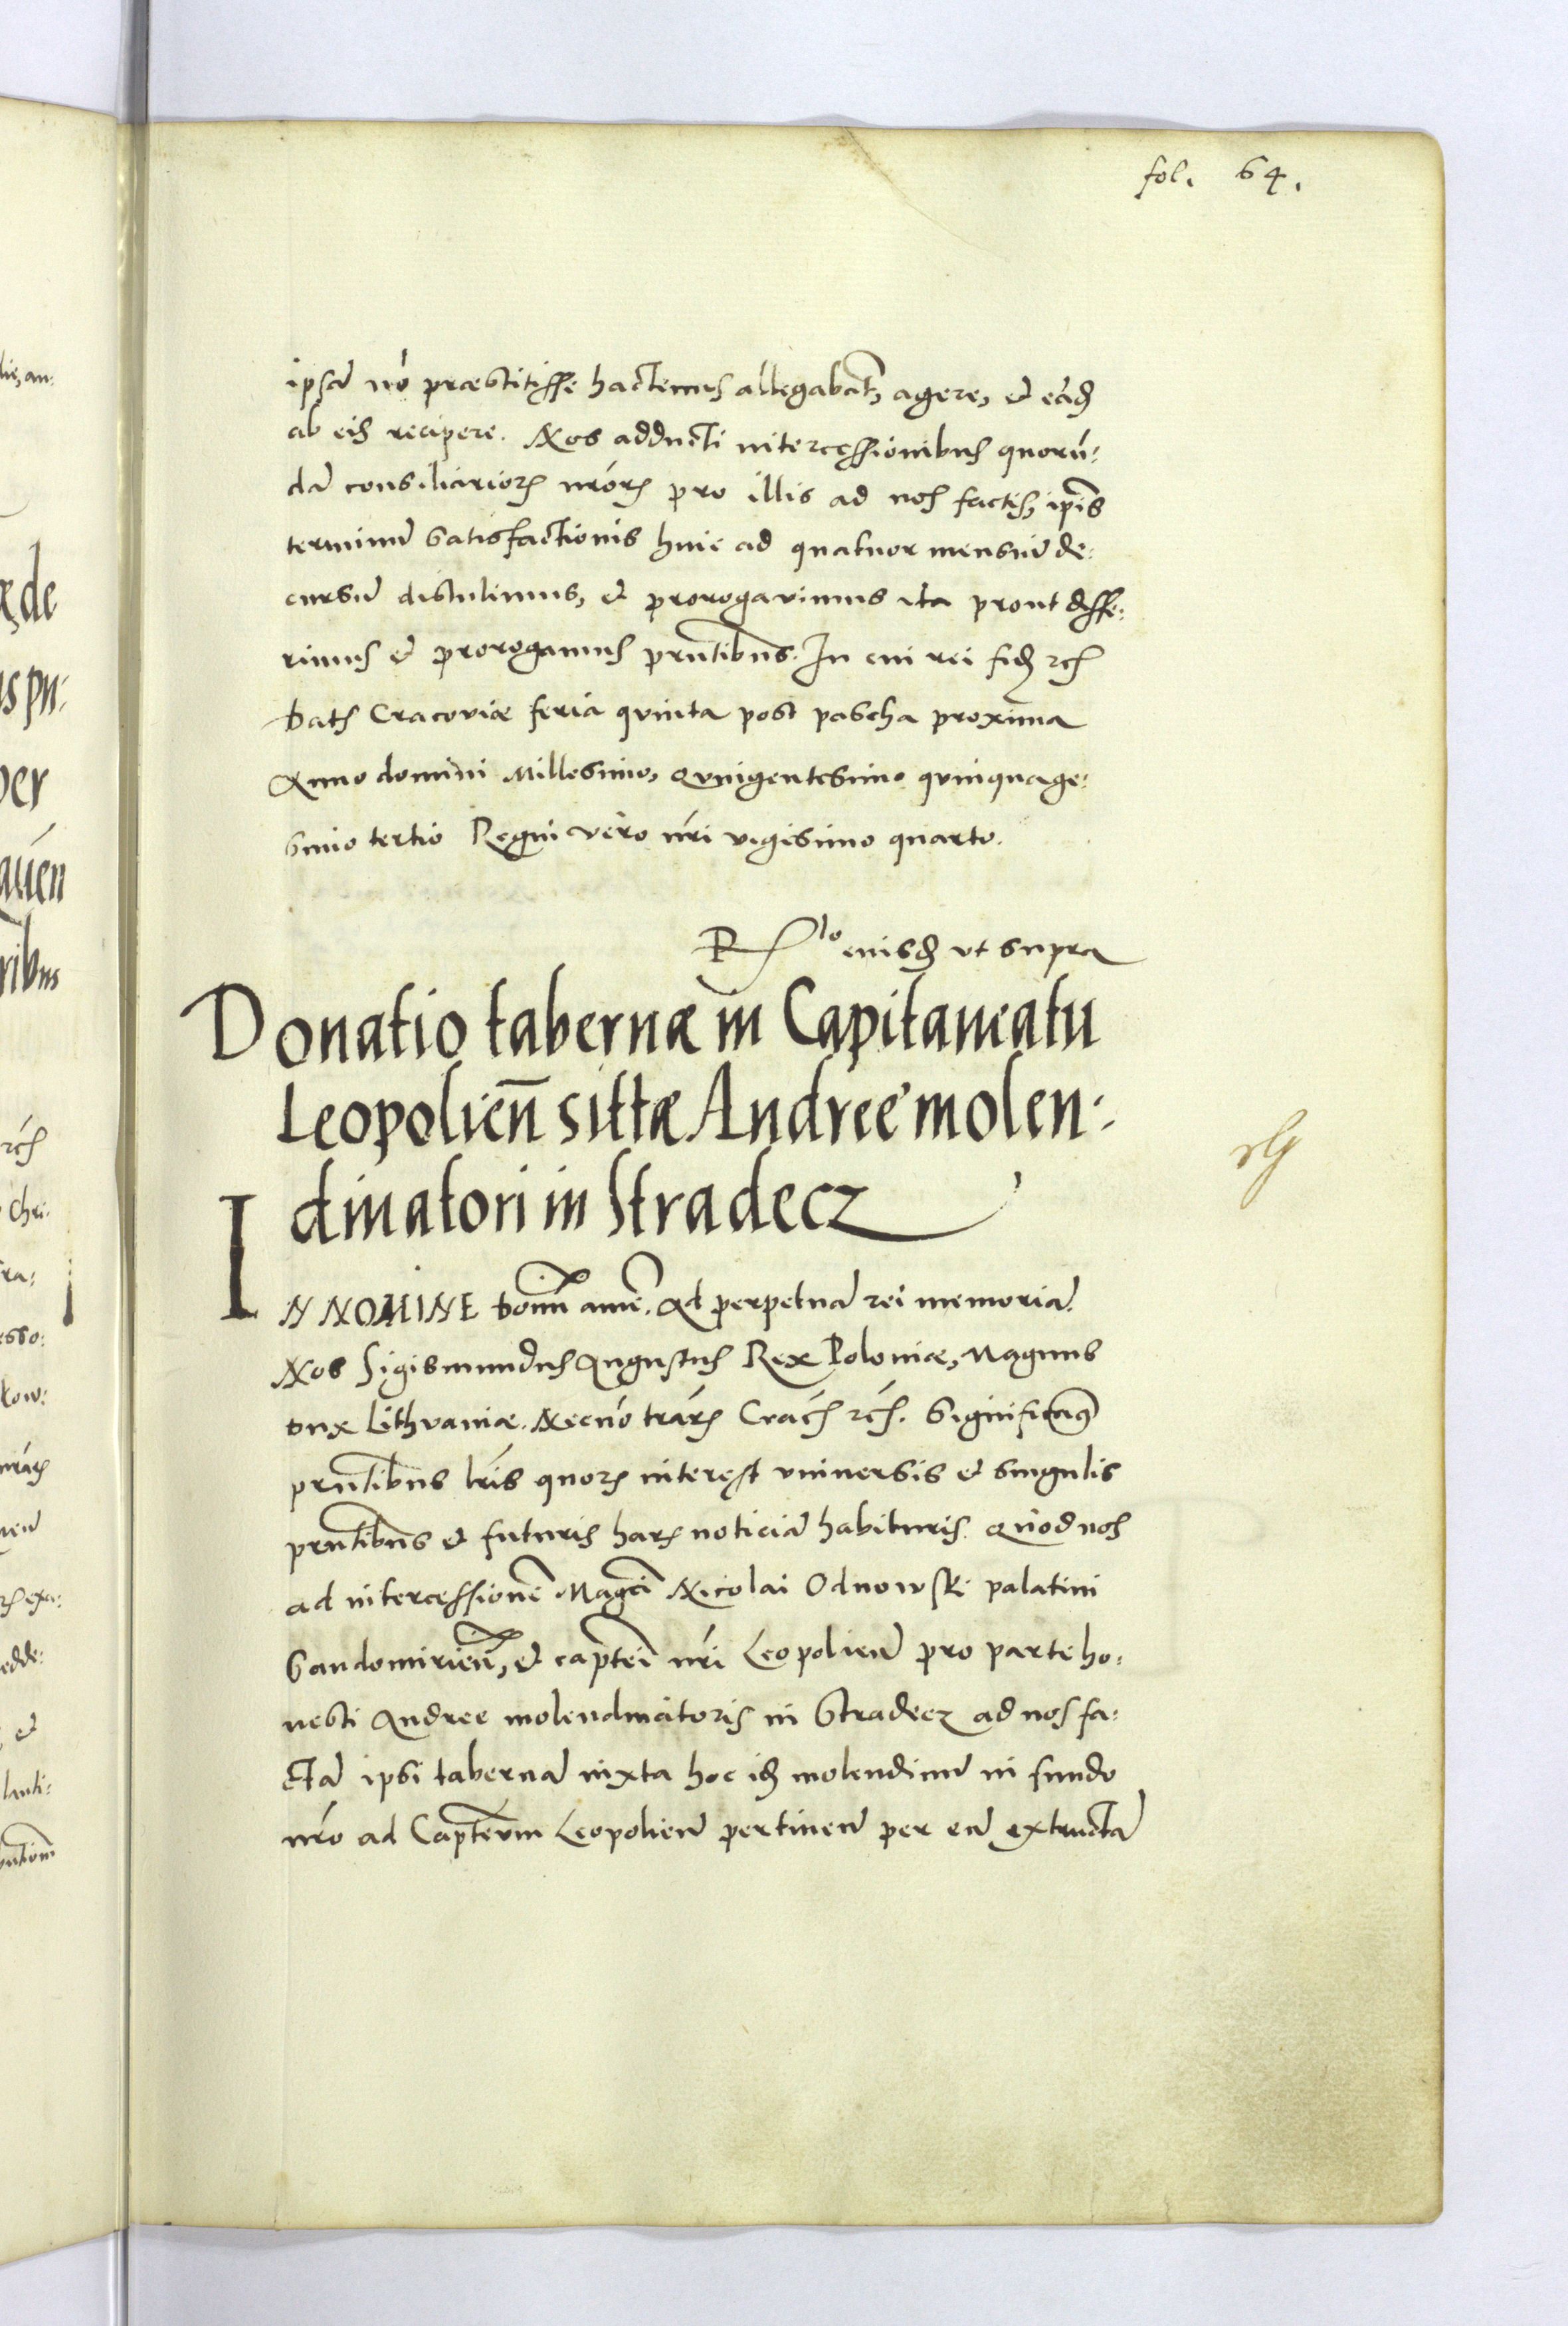 fol. 64.
ipsā nō præstitisse hactenus allegabāt, agere, et eādē
ab eisd recipere. Nos adducti intercessionibus quorū:
dā consiliarior nrōr pro illis ad nos factis, ipīs
terminū satisfactionis huic ad quatuor mensiū de:
cursū distulimus, et prorogavimus ita prout diffe:
rimus et prorogamus prntibus. In cui rei fidē rc
Dat Cracoviæ feria quinta post pascha proxima
Anno domini Millesimo, quingentesimo quinquage:
simo tertio Regni vero nri vigesimo quarto.
Rlo eiusd ut supra
Donatio tabernæ in Capitaneatu
Leopolien sittæ Andreē molen:
dinatori in Stradecz
IN NOMINE domī amē. Ad perpetuā rei memoriā.
Nos Sigismundus Augustus Rex Poloniæ, Magnus
Dux Lithvaniæ. Necnō trār Crac rc. Significamus
prntibus lris quor interest universis et singulis
prntibus et futuris har noticiā habituris. Quod nos
ad intercessionē Magci Nicolai Odnowski palatini
Sandomirien, et captei nri Leopolien pro parte ho:
nesti Andree molendinatoris in Stradecz ad nos fa:
ctā ipsi tabernā iuxta hoc id molendinū in fundo
nro ad Capteum Leopolien pertinen per eū extructā